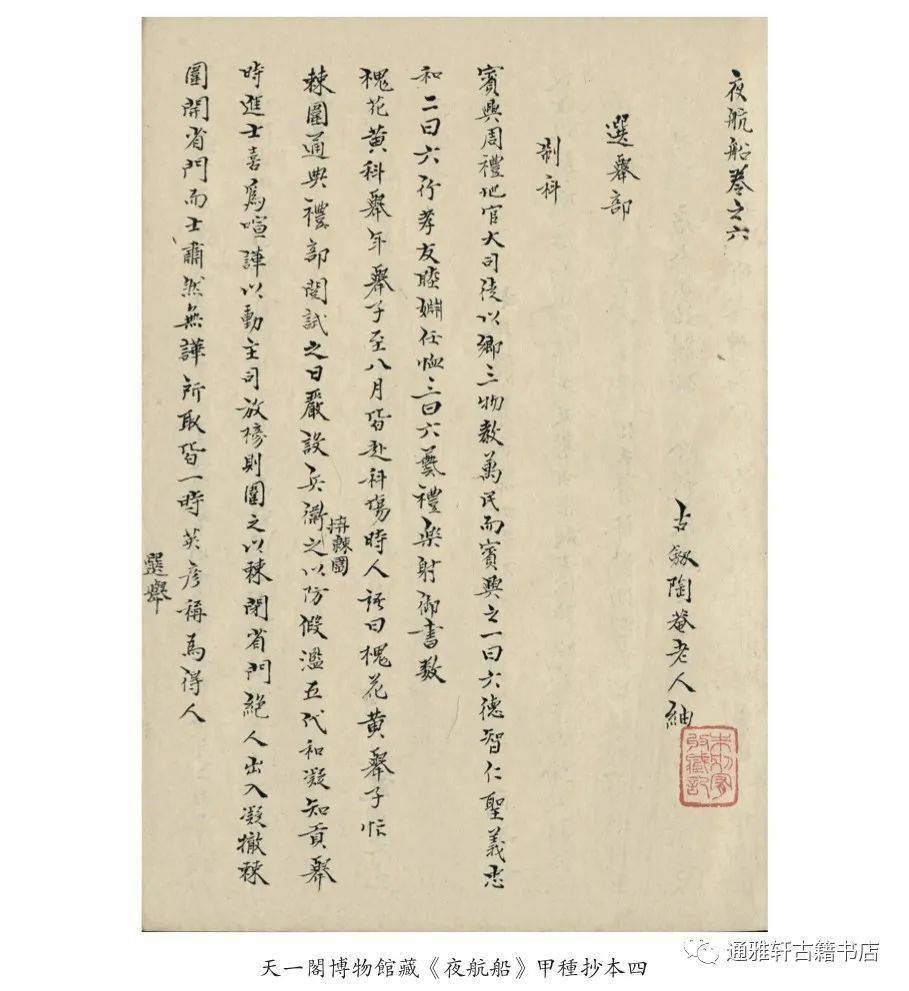 夜航船卷之六
古劔陶菴老人紬
選舉部
制科
賓興周禮地官大司徒以鄉三物教萬民而賓興之一曰六德智仁聖義忠
和二曰六行孝友睦婣任恤三曰六藝禮樂射御書數
槐花黃科舉年舉子至八月皆赴科塲時人語曰槐花黃舉子忙
棘圍通典禮部閱試之日嚴設兵衛之以防假濫五代和凝知貢舉
拵棘圍
時進士喜為喧譁以動主司放榜則圍之以棘閉省門絕人出入凝撤棘
圍開省門而士肅然無譁所取皆一時英彥稱為得人
選舉
天一閣博物館藏《夜航船》甲種抄本四
通雅轩古籍书店